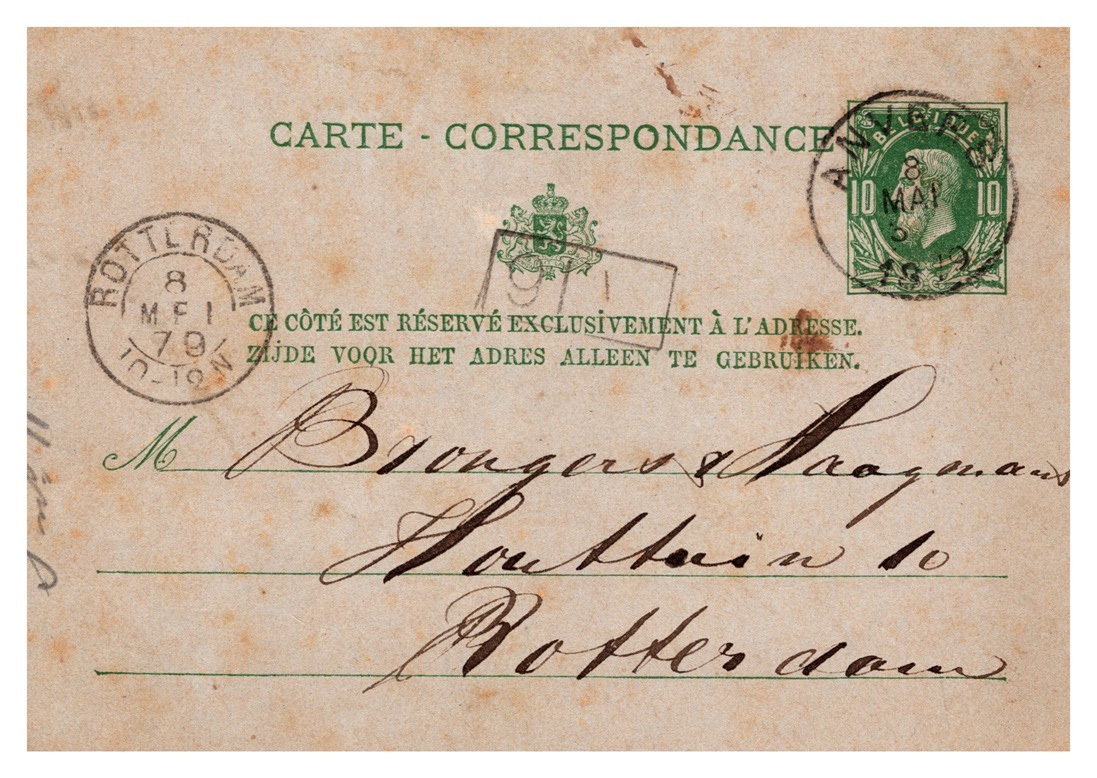 CARTE - CORRESPONDANCE
BELGIQUE
10 10
ANVERS
8
MAI
1879
ROTTERDAM
8
MEI
79
10-12N
9 1
CE CÔTÉ EST RÉSERVÉ EXCLUSIVEMENT À L'ADRESSE.
ZIJDE VOOR HET ADRES ALLEEN TE GEBRUIKEN.
M Brongers & Haagmans
Houttuin 10
Rotterdam